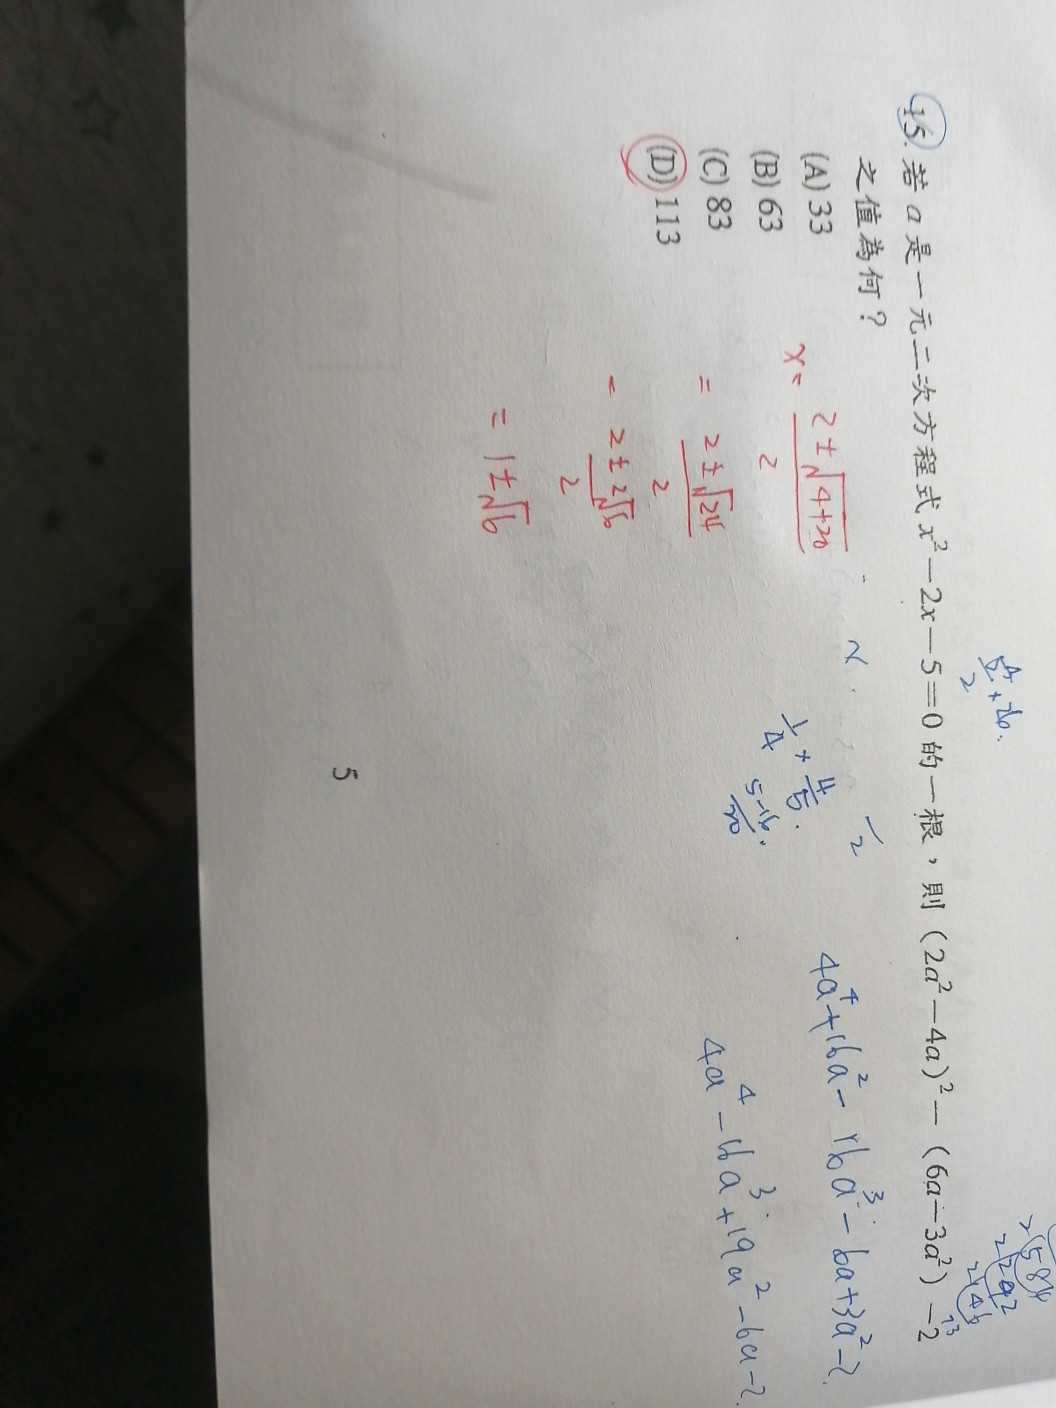 15. 若 a 是一元二次方程式 x²－2x－5＝0 的一根，則 (2a²－4a)²－ (6a－3a²) －2
之值為何？
(A) 33
(B) 63
(C) 83
(D) 113
x = 2±√4+20 / 2
= 2±√24 / 2
= 2±2√6 / 2
= 1±√6
4a⁴+16a²-16a³-6a+3a²-2
4a⁴-16a³+19a²-6a-2
1/4 + 4/5
5